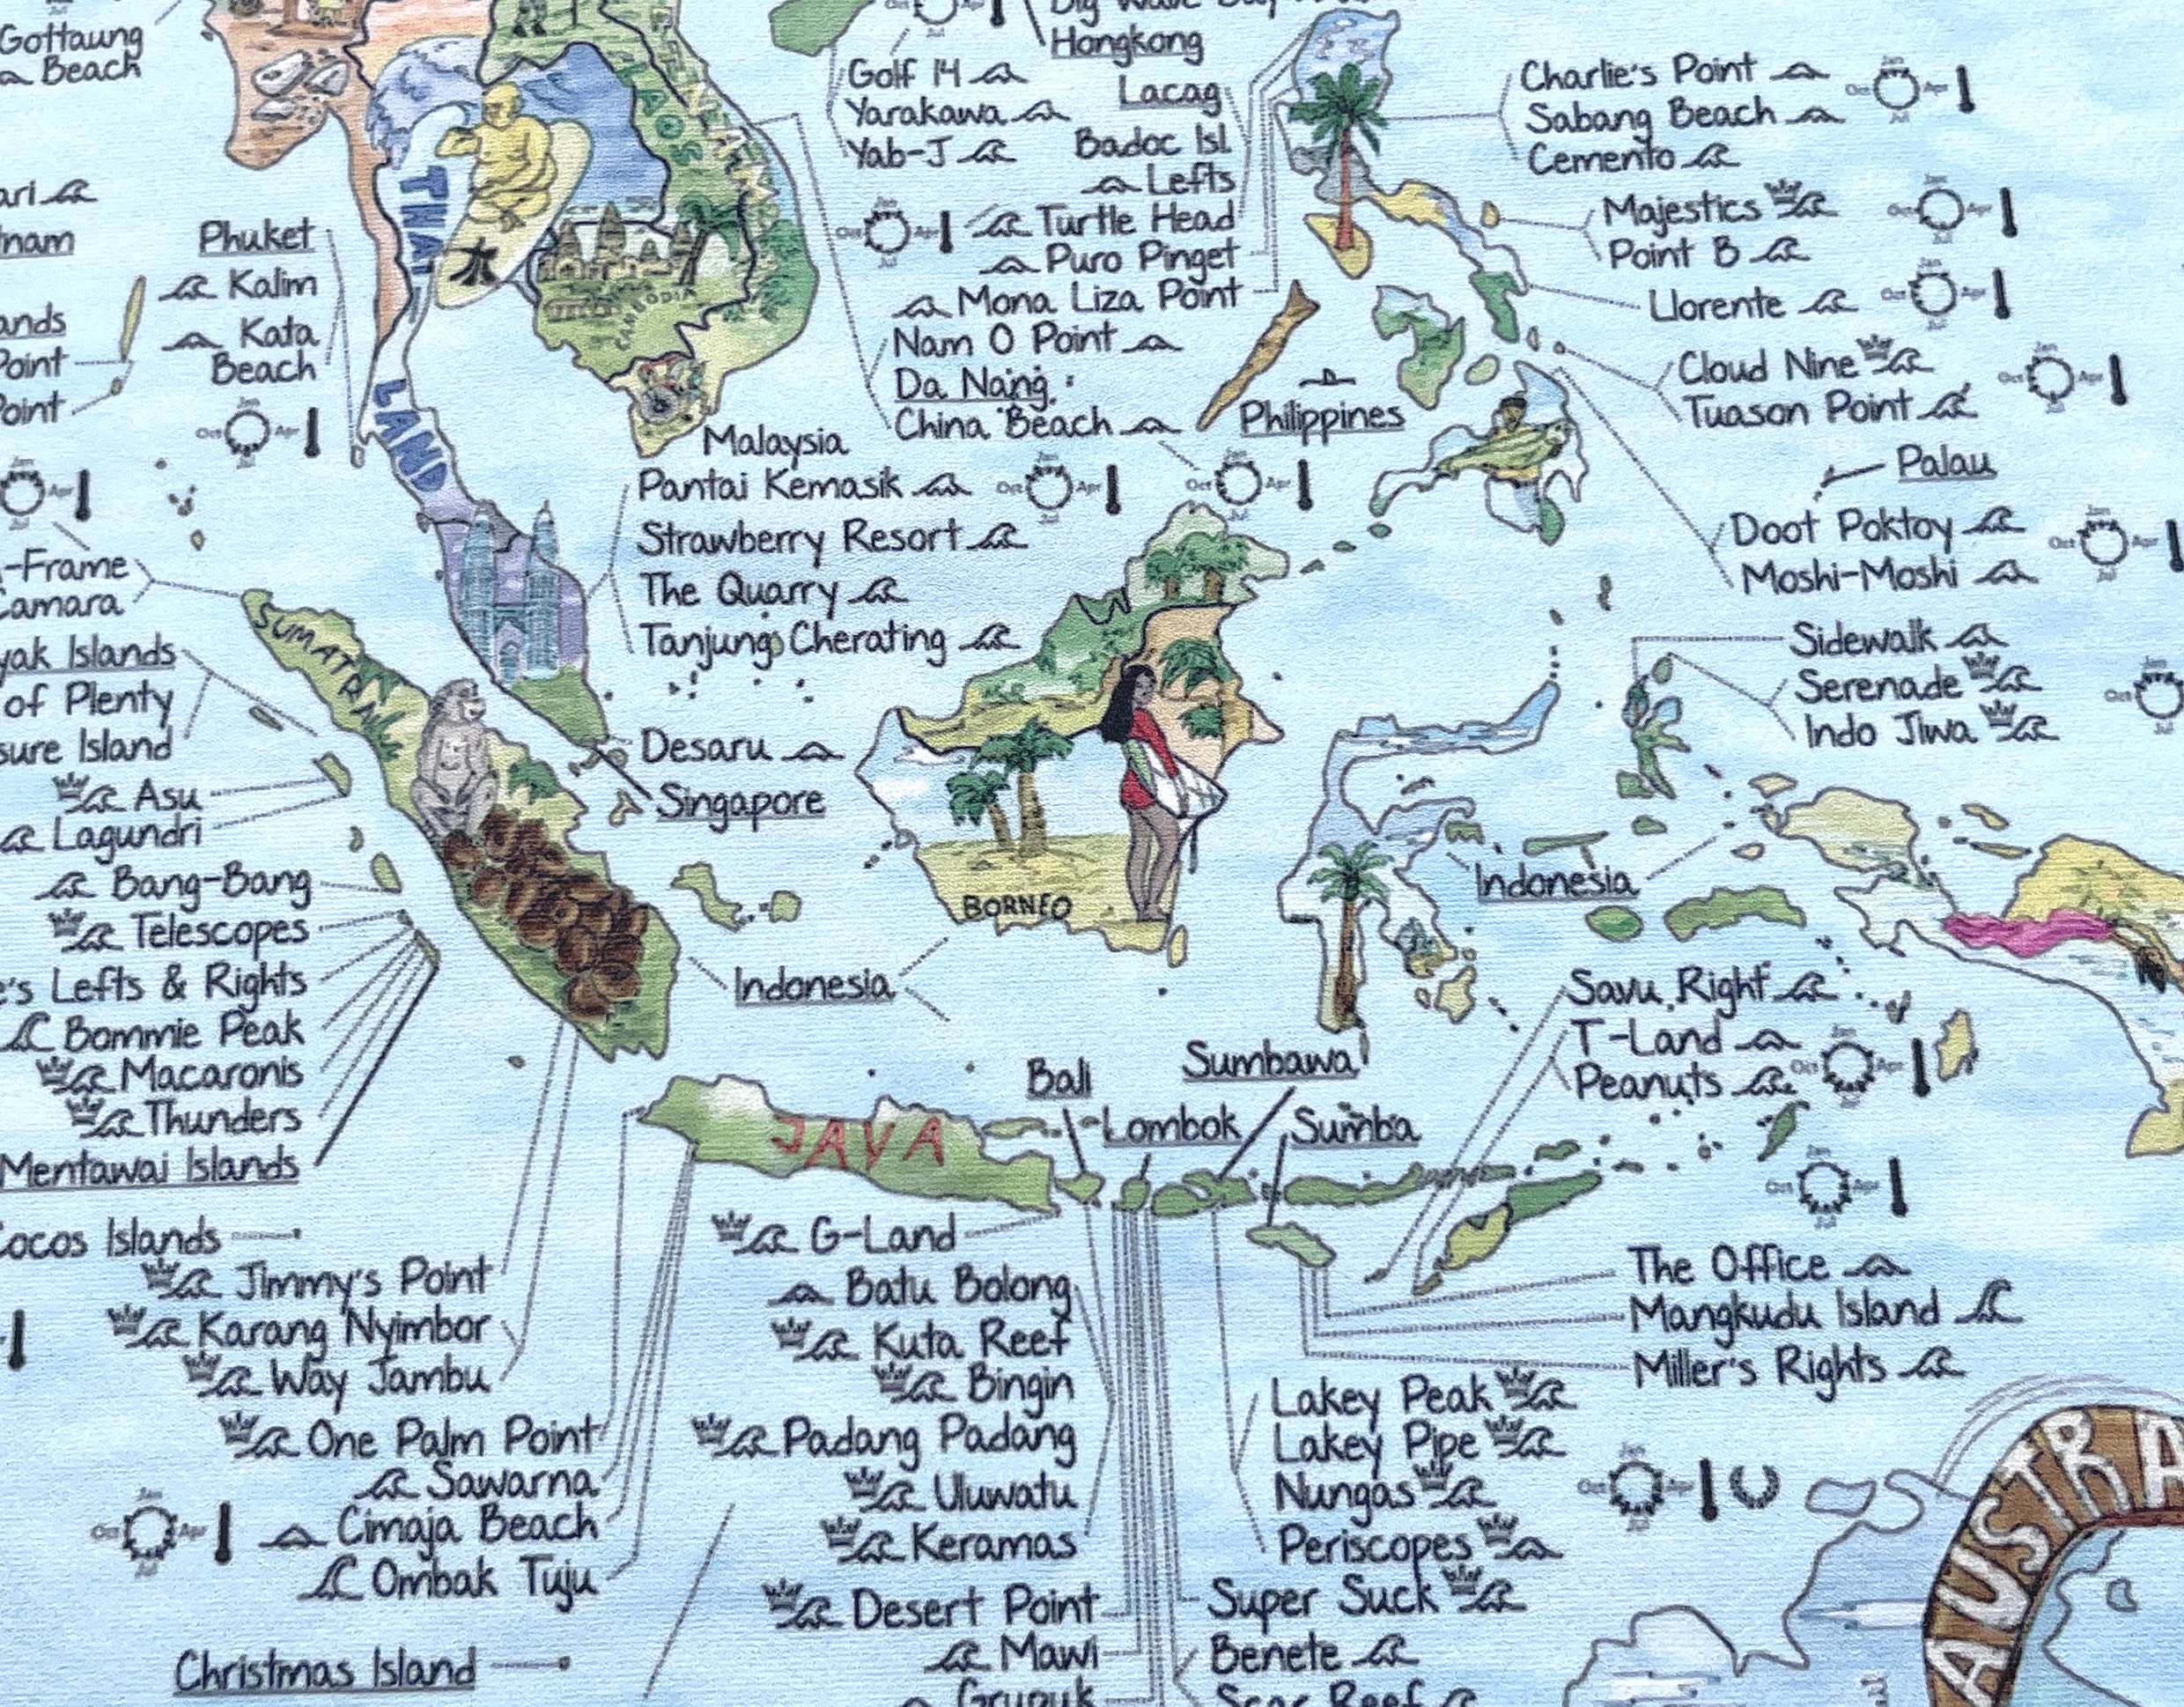 Gottaung
Beach
Hongkong
Golf 14
Yarakawa
Yab-J
Lacag
Badoc Isl
Lefts
Turtle Head
Puro Pinget
Mona Liza Point
Nam O Point
Da Nang
China Beach
Philippines
Charlie's Point
Sabang Beach
Cemento
Majestics
Point B
Llorente
Cloud Nine
Tuason Point
Palau
Doot Poktoy
Moshi-Moshi
Sidewalk
Serenade
Indo Jiwa
LAOS
CAMBODIA
THAI
LAND
Phuket
Kalim
Kata
Beach
Point
Point
Malaysia
Pantai Kemasik
Strawberry Resort
The Quarry
Tanjung Cherating
Desaru
Singapore
-Frame
Camara
yak Islands
of Plenty
sure Island
Asu
Lagundri
Bang-Bang
Telescopes
e's Lefts & Rights
Bommie Peak
Macaronis
Thunders
Mentawai Islands
SUMATRA
BORNEO
Indonesia
Indonesia
JAVA
Bali
Lombok
Sumbawa
Sumba
Savu Right
T-Land
Peanuts
The Office
Mangkudu Island
Miller's Rights
Cocos Islands
Jimmy's Point
Karang Nyimbor
Way Jambu
One Palm Point
Sawarna
Cimaja Beach
Ombak Tuju
Christmas Island
G-Land
Batu Bolong
Kuta Reef
Bingin
Padang Padang
Uluwatu
Keramas
Desert Point
Mawi
Grupuk
Lakey Peak
Lakey Pipe
Nungas
Periscopes
Super Suck
Benete
Scar Reef
AUSTRA